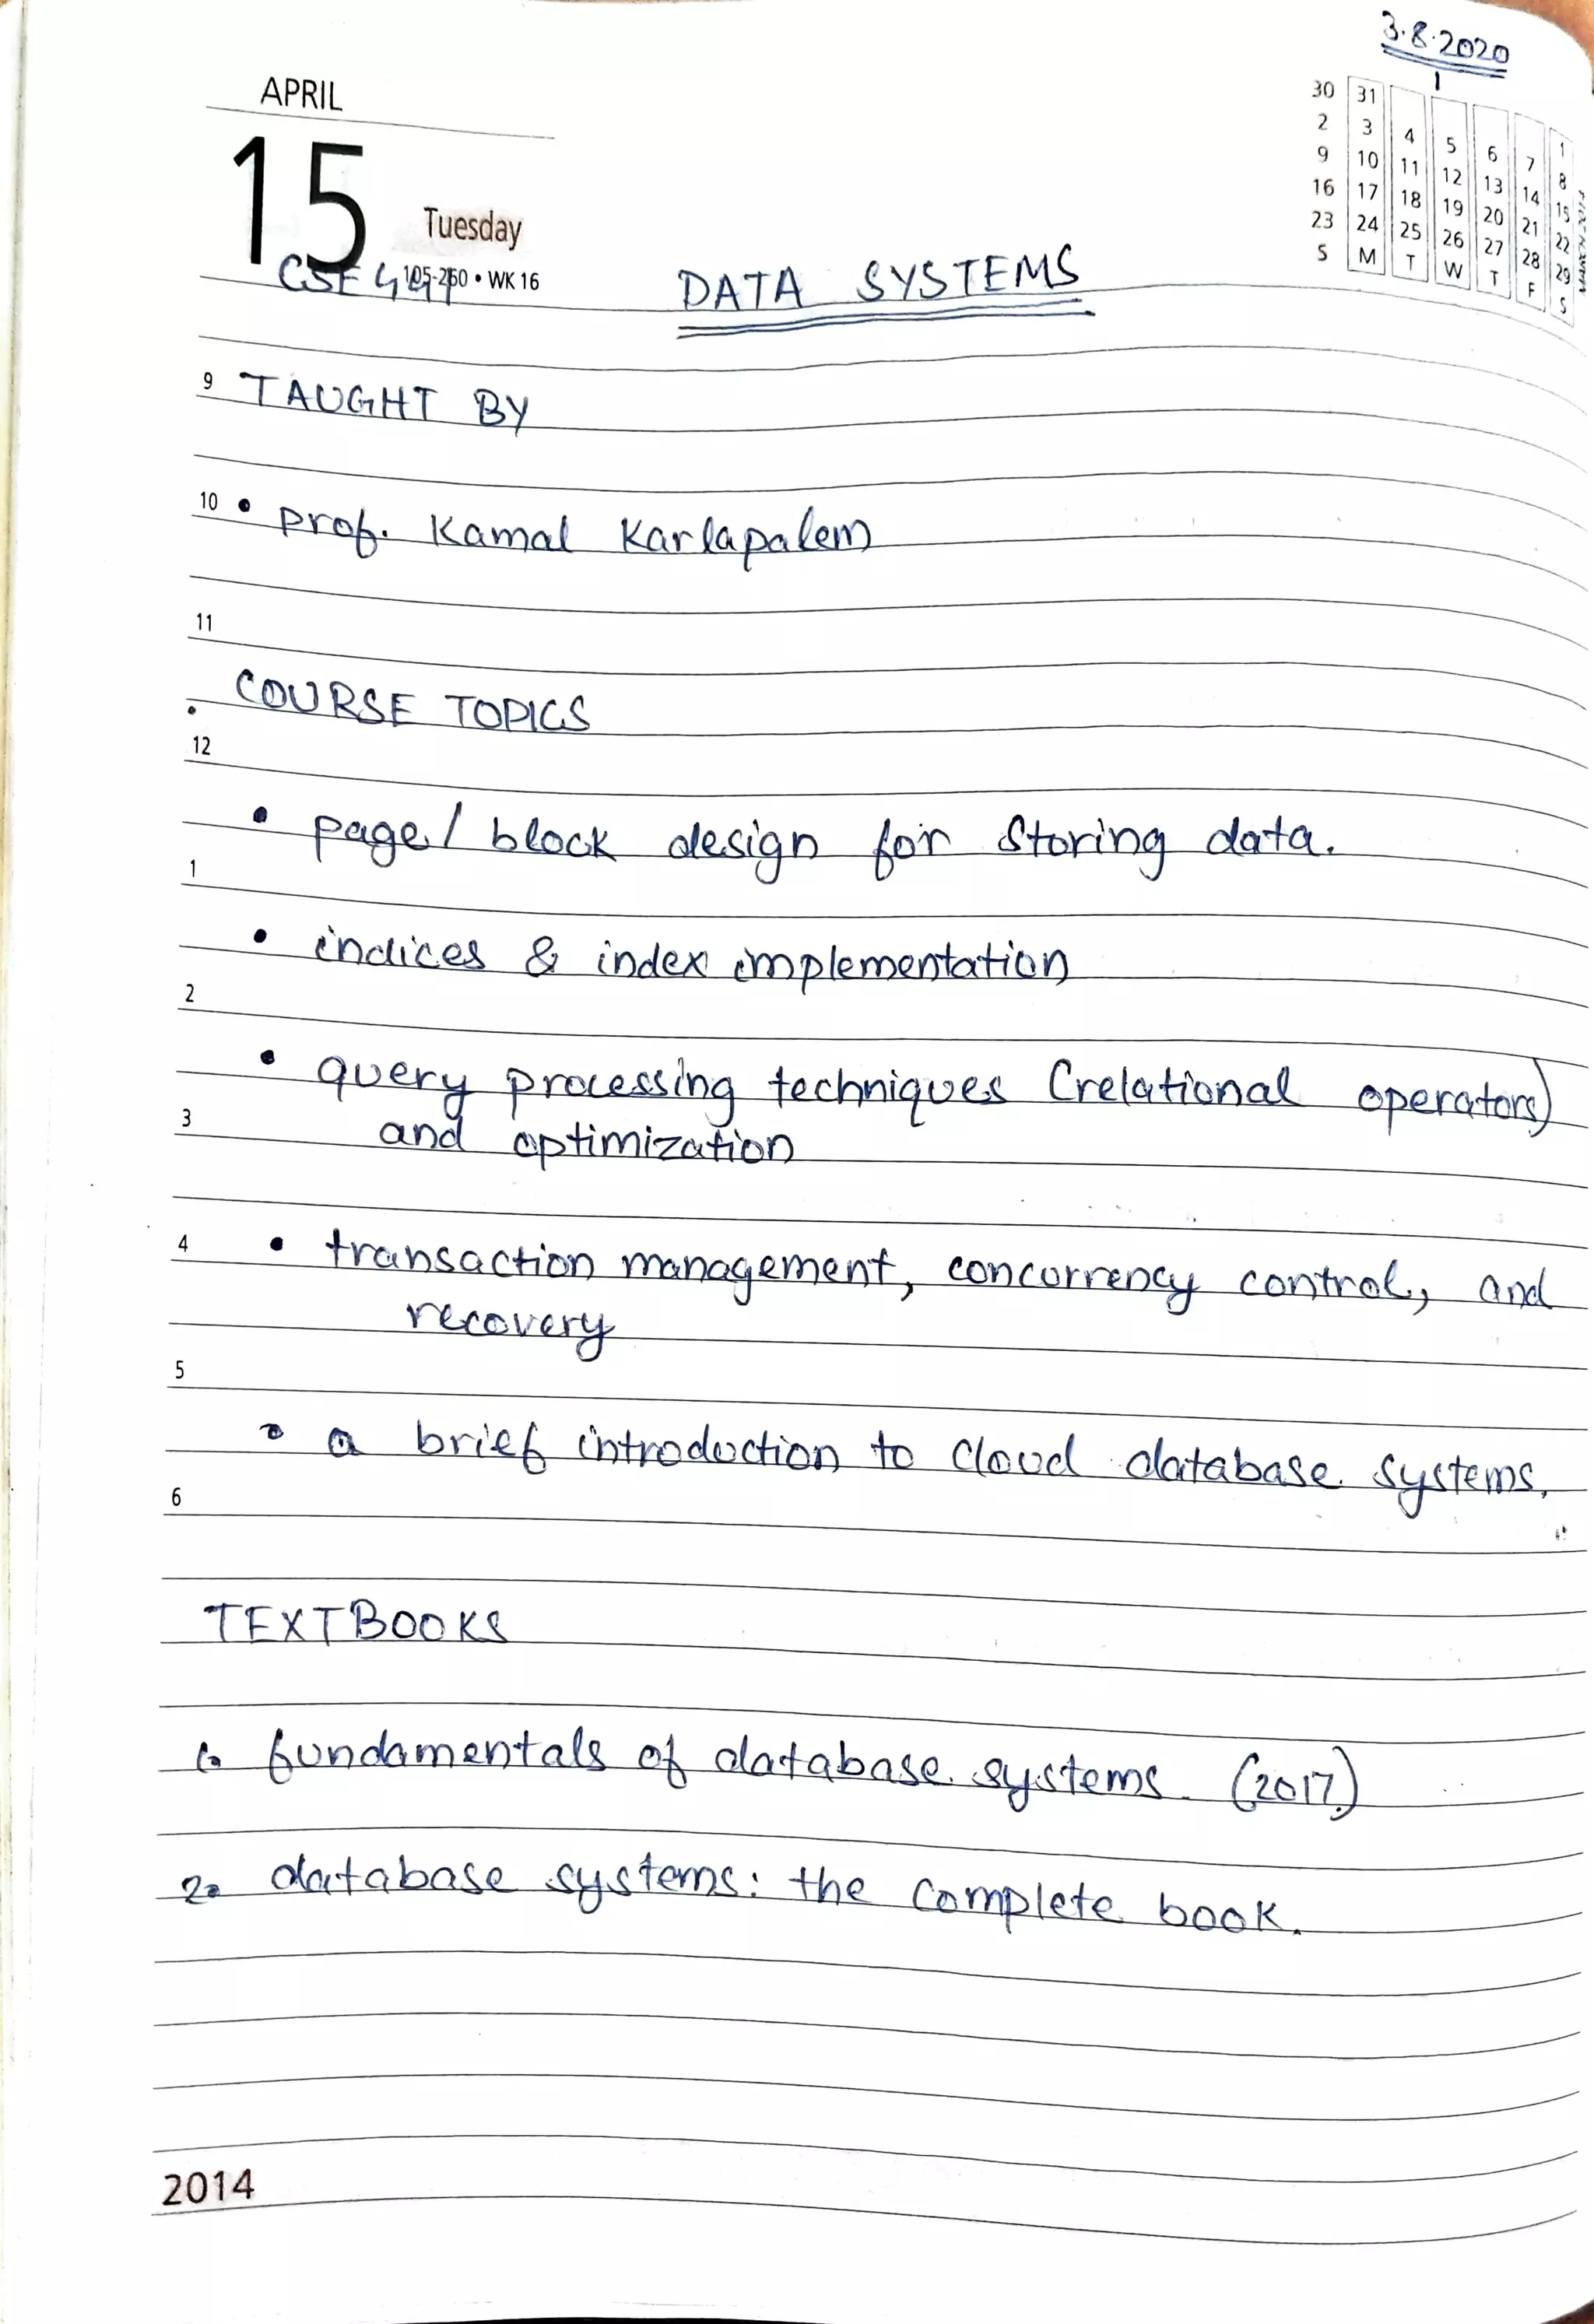 3.8.2020
APRIL
30 31
2 3 4 5 6 7 1
9 10 11 12 13 14 8
16 17 18 19 20 21 15
23 24 25 26 27 28 22
29
S M T W T F S
15 Tuesday
105-260 • WK 16
CSE
DATA SYSTEMS
9 TAUGHT BY
10 • prof. Kamal Karlapalem
11
COURSE TOPICS
12
• page/ block design for storing data.
1
• indices & index implementation
2
• query processing techniques (relational operators)
3 and optimization
4 • transaction management, concurrency control, and
recovery
5
• a brief introduction to cloud database systems.
6
TEXTBOOKS
1. fundamentals of database systems (2017)
2. database systems: the complete book.
2014